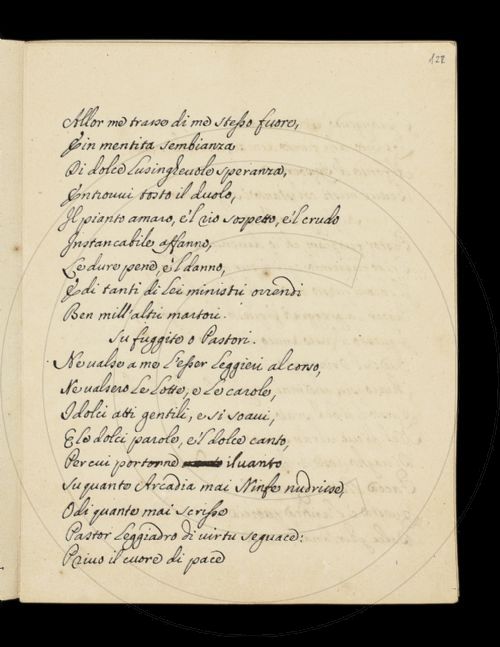 122
Allor me trasse di me stesso fuore,
E in mentita sembianza
Di dolce lusinghevole speranza,
Entrovvi tosto il duolo,
Il pianto amaro, e'l rio sospetto, e'l crudo
Instancabile affanno,
Le dure pene, e'l danno,
E di tanti di lei ministri orrendi
Ben mill'altri martori.
Su fuggite o Pastori.
Ne valse a me l'esser leggieri al corso,
Ne valsero le lotte, e le carole,
I dolci atti gentili, e sì soavi,
E le dolci parole, e'l dolce canto,
Per cui portonne il vanto
Su quante Arcadia mai Ninfe nudrisse,
O di quante mai scrisse
Pastor leggiadro di virtù seguace:
Privo il cuore di pace